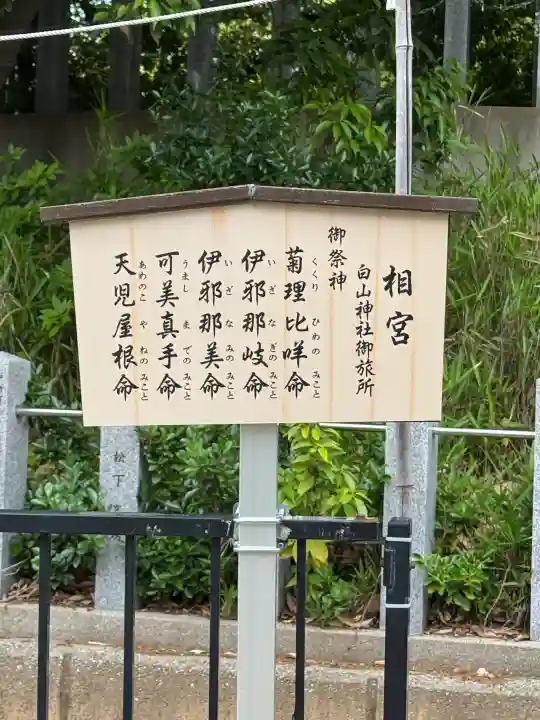 相宮
白山神社御旅所
御祭神
菊理比咩命
くくり ひめの みこと
伊邪那岐命
いざなぎの みこと
伊邪那美命
いざなみの みこと
可美真手命
うまし までの みこと
天児屋根命
あめのこ や ねの みこと
松下